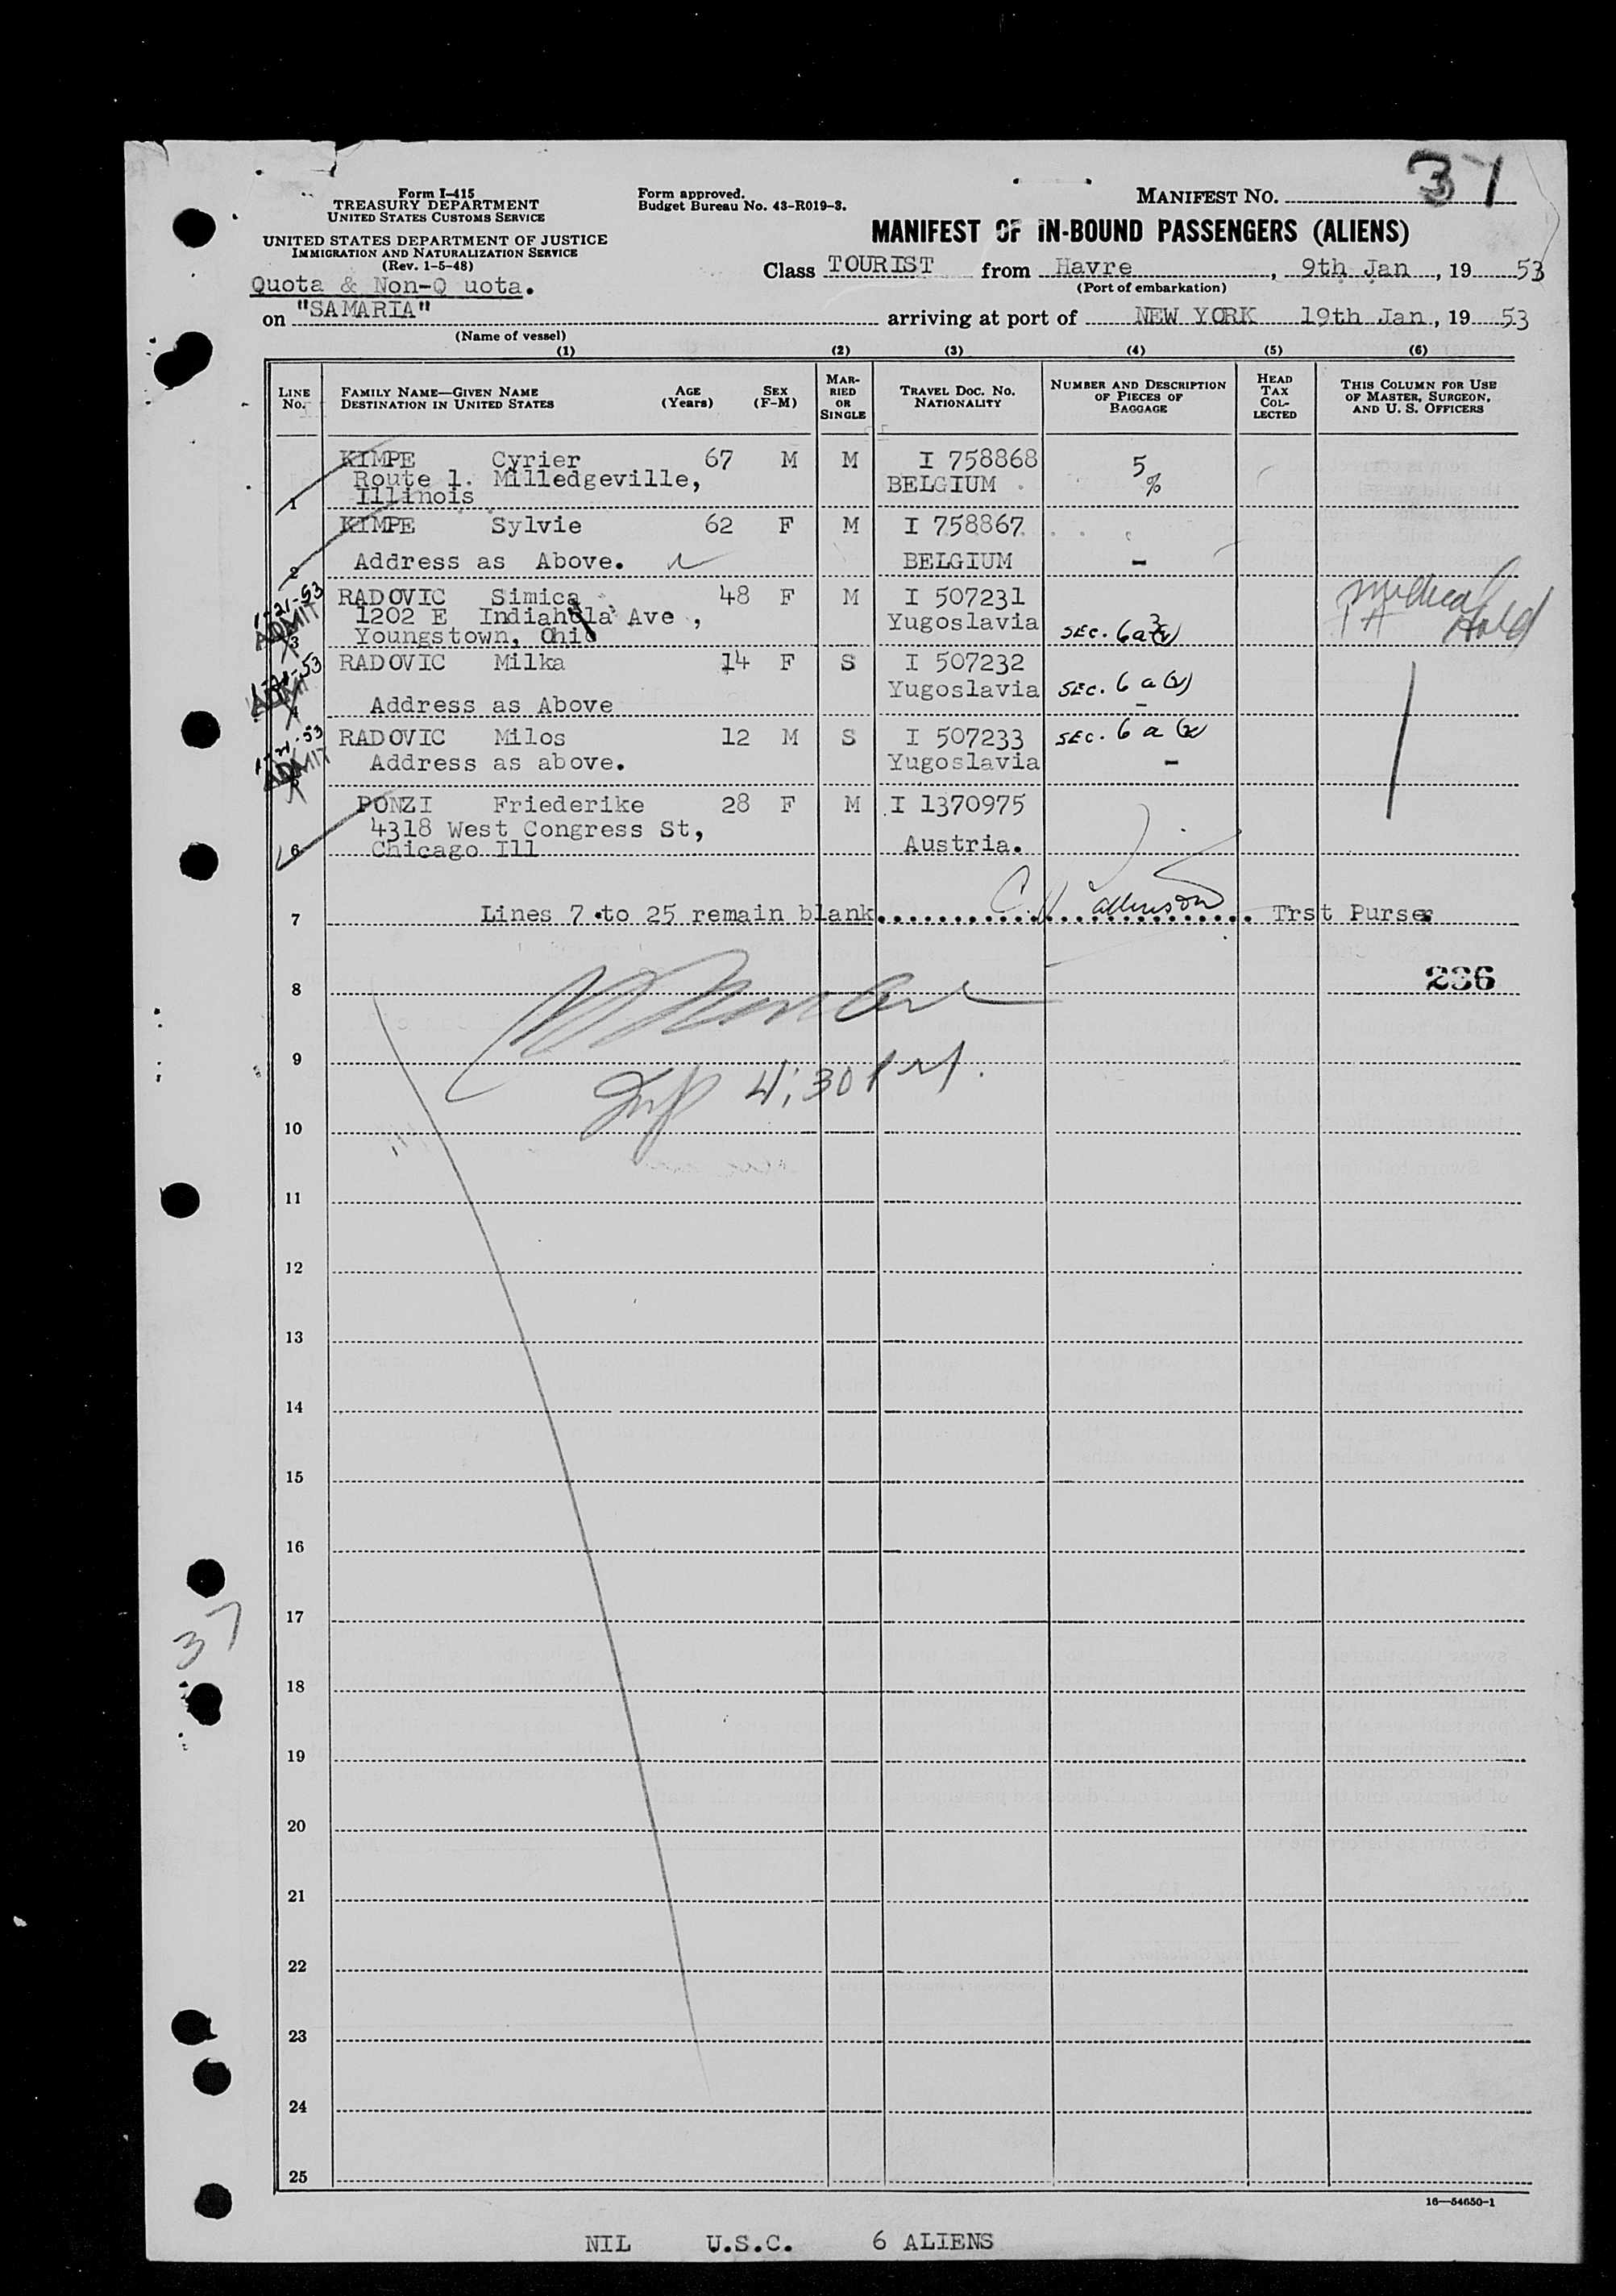 37
Form I-415
TREASURY DEPARTMENT
UNITED STATES CUSTOMS SERVICE
UNITED STATES DEPARTMENT OF JUSTICE
IMMIGRATION AND NATURALIZATION SERVICE
(Rev. 1-5-48)
Form approved.
Budget Bureau No. 43-R019-3.
MANIFEST NO.
MANIFEST OF IN-BOUND PASSENGERS (ALIENS)
Quota & Non-Q uota.
Class TOURIST from Havre, 9th Jan, 19 53
(Port of embarkation)
on "SAMARIA" arriving at port of NEW YORK 19th Jan, 19 53
(Name of vessel)
(1) (2) (3) (4) (5) (6)
LINE No. FAMILY NAME—GIVEN NAME DESTINATION IN UNITED STATES AGE (Years) SEX (F-M) MARRIED OR SINGLE TRAVEL DOC. NO. NATIONALITY NUMBER AND DESCRIPTION OF PIECES OF BAGGAGE HEAD TAX COLLECTED THIS COLUMN FOR USE OF MASTER, SURGEON, AND U. S. OFFICERS
KIMPE Cyrier 67 M M I 758868 5
Route 1. Milledgeville, BELGIUM %
1 Illinois
KIMPE Sylvie 62 F M I 758867
2 Address as Above. BELGIUM -
1-21-53 RADOVIC Simica 48 F M I 507231 Medical Hold
ADMIT 1202 E Indianola Ave, Yugoslavia SEC. 6a3
3 Youngstown, Ohio
1-21-53 RADOVIC Milka 14 F S I 507232
ADMIT Yugoslavia SEC. 6 a
4 Address as Above -
1-21-53 RADOVIC Milos 12 M S I 507233 SEC. 6 a
ADMIT 5 Address as above. Yugoslavia -
PONZI Friederike 28 F M I 1370975
4318 West Congress St,
6 Chicago Ill Austria.
7 Lines 7 to 25 remain blank Trst Purser
236
8
9
4:30 PM.
10
11
12
13
14
15
16
17
37
18
19
20
21
22
23
24
25
16—54650-1
NIL U.S.C. 6 ALIENS